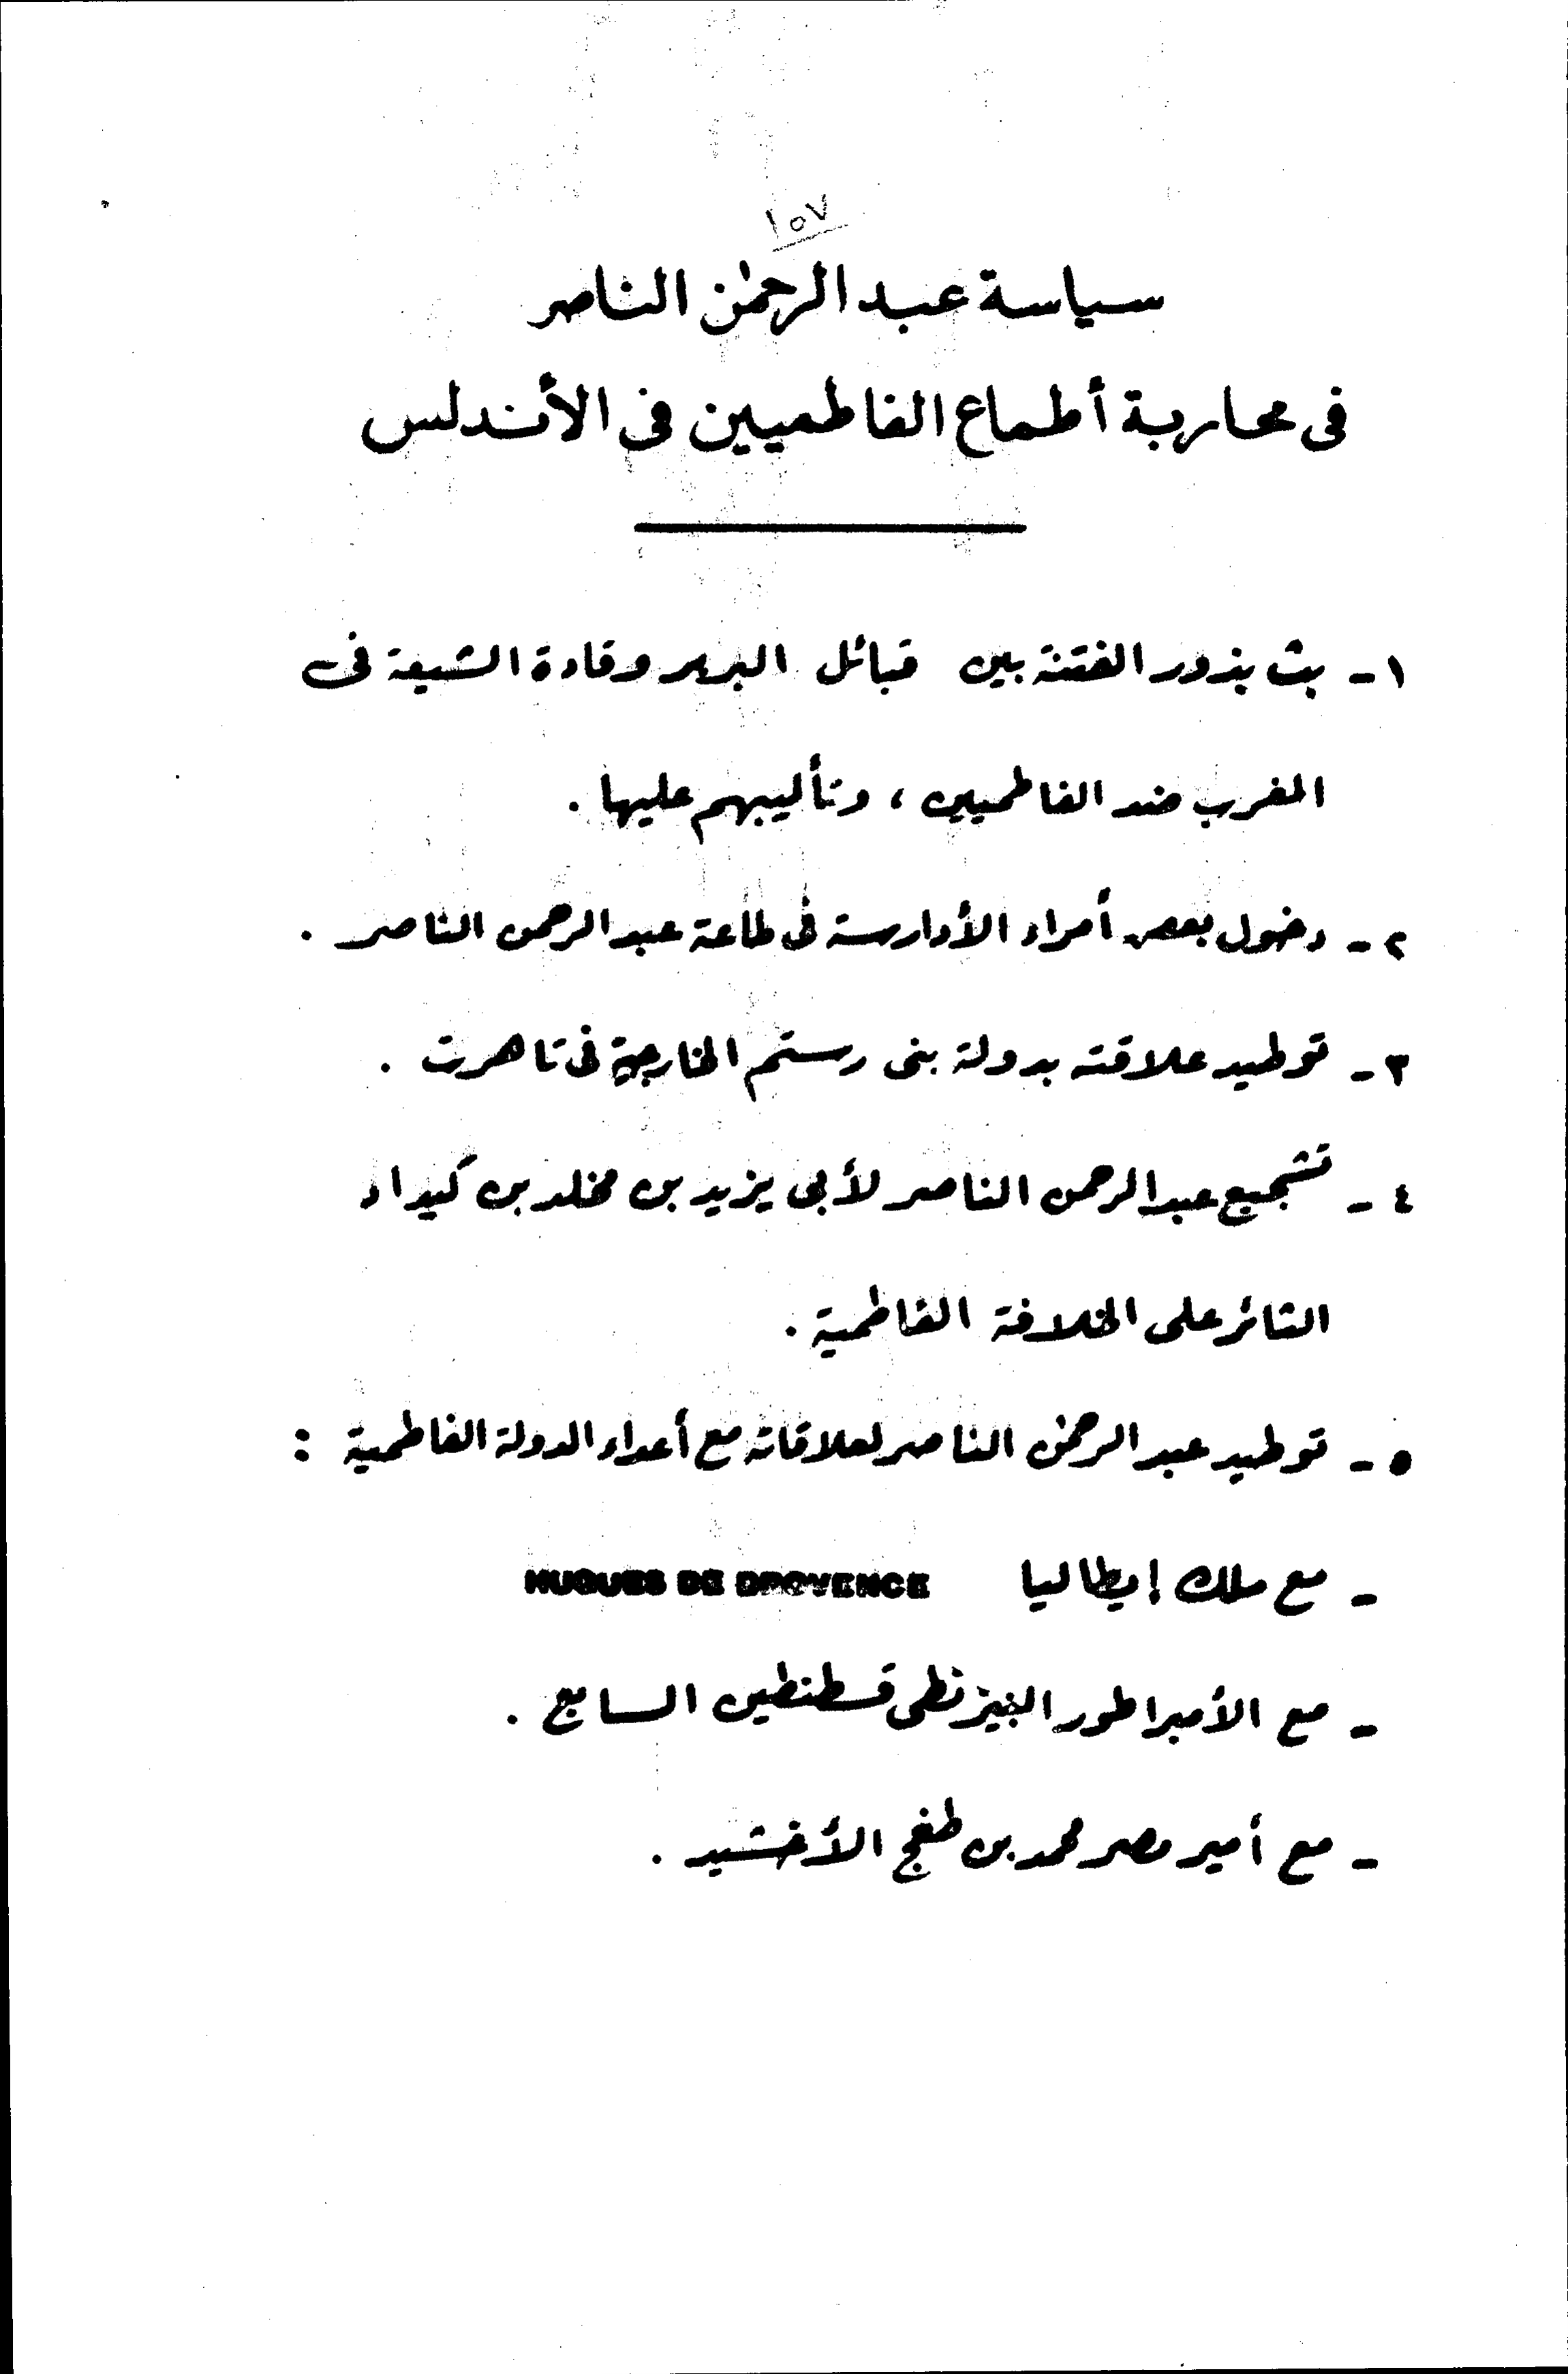 ١٥٧
سياسة عبد الرحمٰن الناصر
فى محاربة أطماع الفاطميين فى الأندلس
١ - بث بذور الفتنة بين قبائل البربر وقادة الشيعة فى
المغرب ضد الفاطميين ، وتأليبهم عليها .
٢ - دخول بعض أمراء الأدارسة فى طاعة عبد الرحمن الناصر .
٣ - توطيد علاقته بدولة بنى رستم الخارجية فى تاهرت .
٤ - تشجيع عبد الرحمن الناصر لأبى يزيد بن مخلد بن كيداد
الثائر على الخلافة الفاطمية .
٥ - توطيد عبد الرحمن الناصر لعلاقاته مع أعداء الدولة الفاطمية :
- مع ملك إيطاليا HUGUES DE PROVENCE
- مع الأمبراطور البيزنطى قسطنطين السابع .
- مع أمير مصر محمد بن طغج الأخشيد .